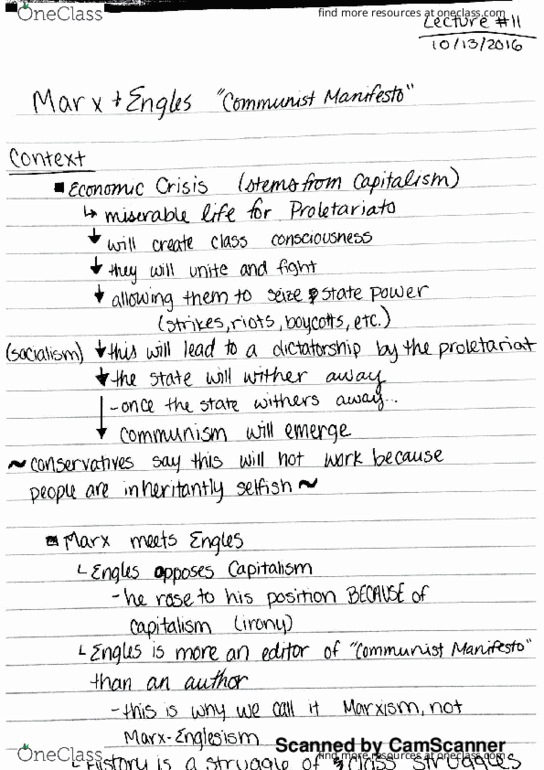 OneClass
find more resources at oneclass.com
Lecture #11
10/13/2016
Marx + Engles "Communist Manifesto"
Context
■ Economic Crisis (stems from Capitalism)
↳ miserable life for Proletariats
↓ will create class consciousness
↓ they will unite and fight
↓ allowing them to seize state power
(strikes, riots, boycotts, etc.)
(socialism) ↓ this will lead to a dictatorship by the proletariat
↓ the state will wither away
- once the state withers away...
↓ communism will emerge
~ conservatives say this will not work because
people are inheritantly selfish ~
■ Marx meets Engles
└ Engles opposes Capitalism
- he rose to his position BECAUSE of
capitalism (irony)
└ Engles is more an editor of "Communist Manifesto"
than an author
- this is why we call it Marxism, not
Marx-Englesism
Scanned by CamScanner
OneClass
find more resources at oneclass.com
└ History is a struggle of class struggles